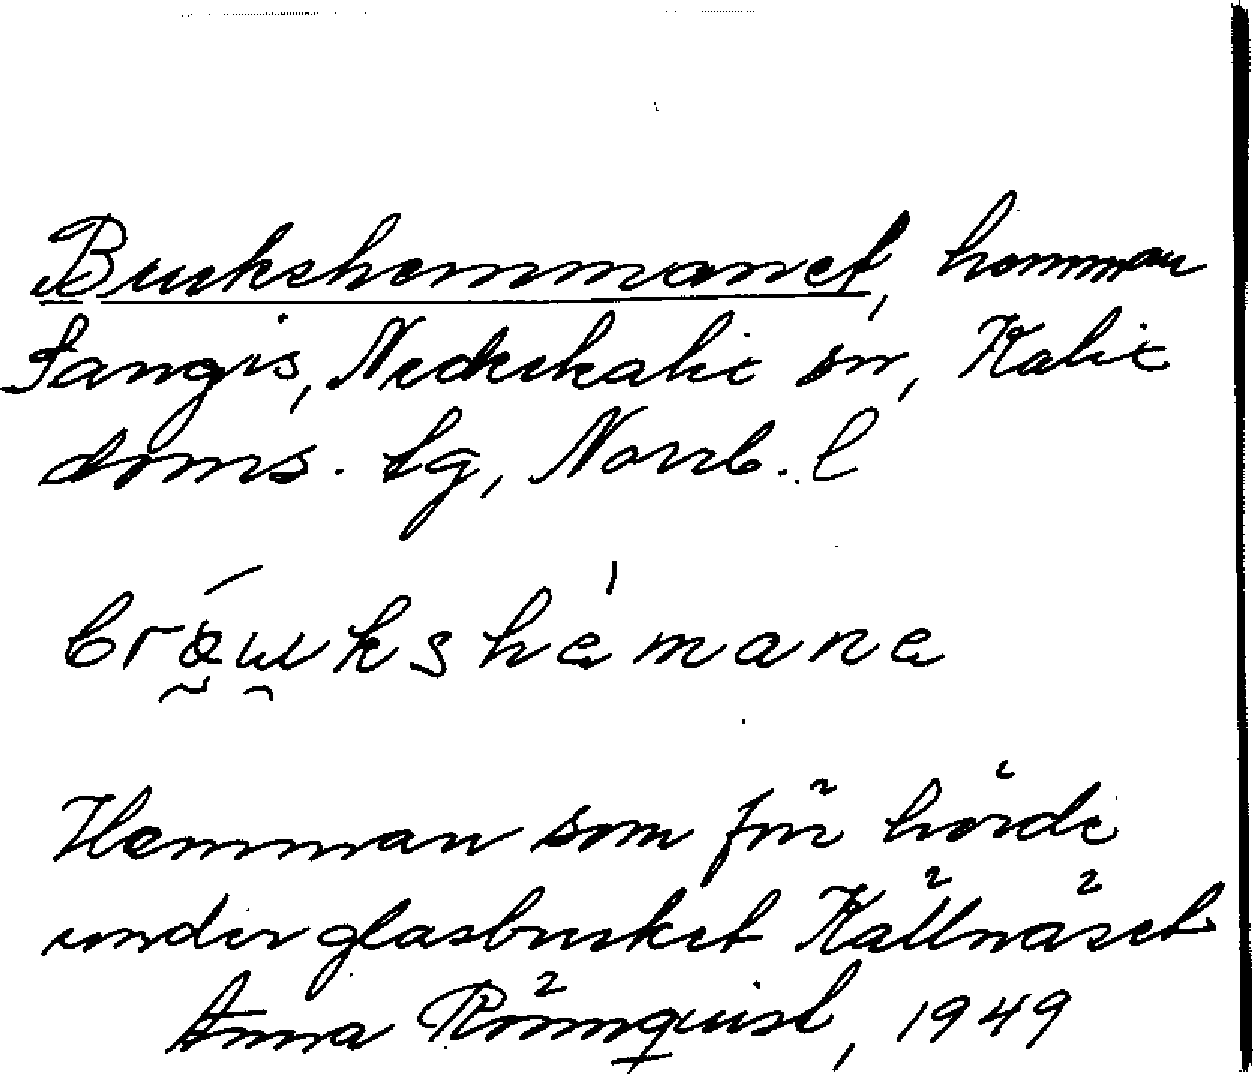 Brukshemmanet, hemman
Sangis, Nederkalix sn, Kalix
doms. lg, Norrb. l
bräukshemane
Hemman som förr hörde
under glasbruket Källnäset
Anna Rönnquist, 1949